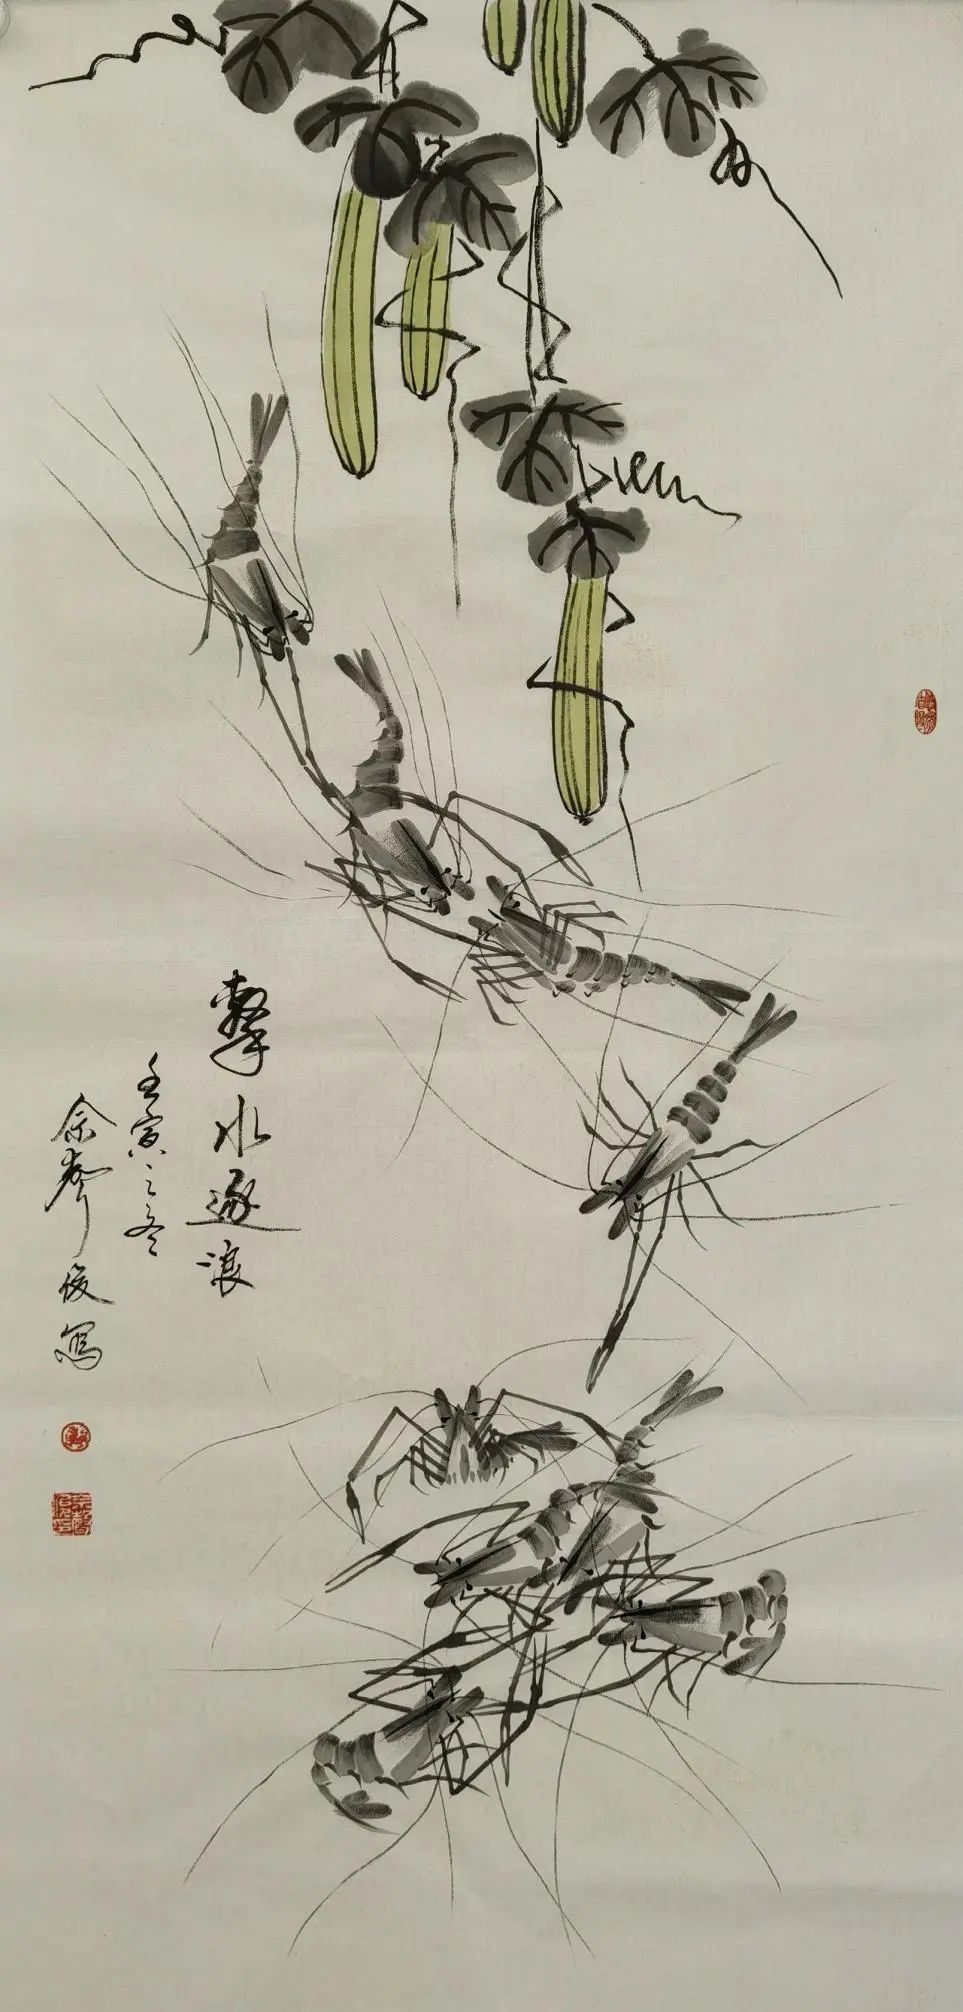 擊水逐浪
壬寅之冬
余俊寫